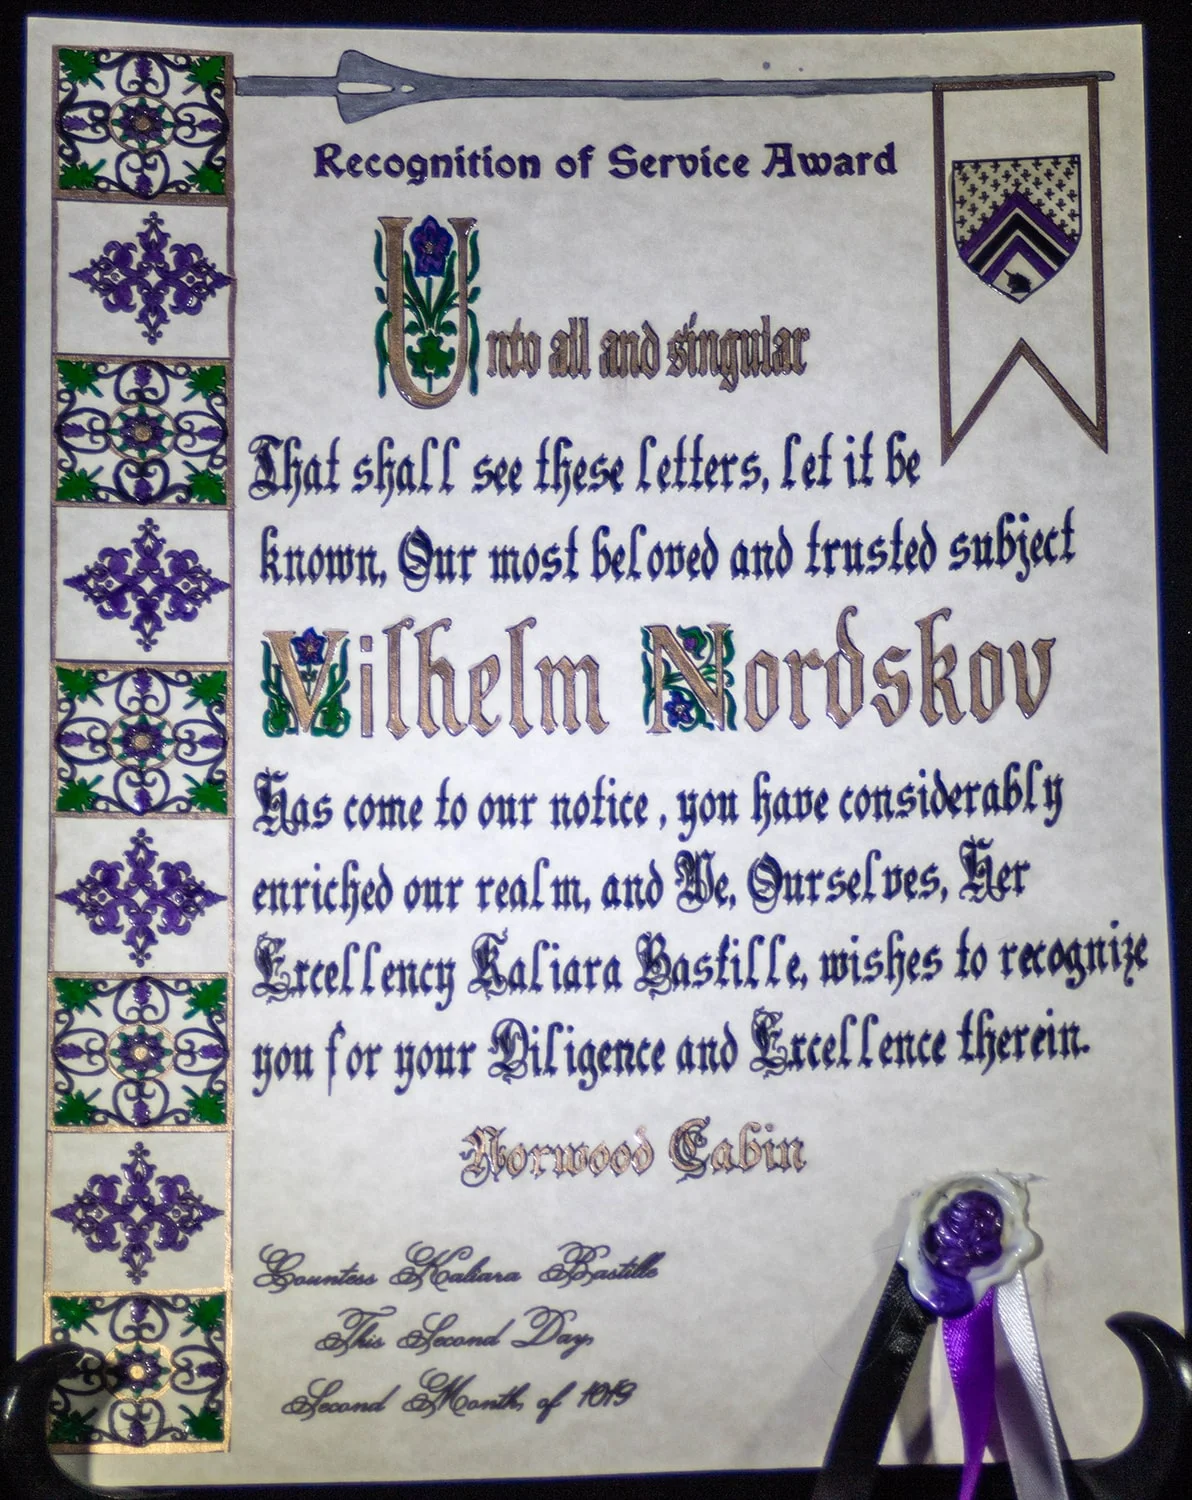 Recognition of Service Award
Unto all and singular
That shall see these letters, let it be
known, Our most beloved and trusted subject
Vilhelm Nordskov
Has come to our notice , you have considerably
enriched our realm, and We, Ourselves, Her
Excellency Kaliara Bastille, wishes to recognize
you for your Diligence and Excellence therein.
Norwood Cabin
Countess Kaliara Bastille
This Second Day,
Second Month, of 1019